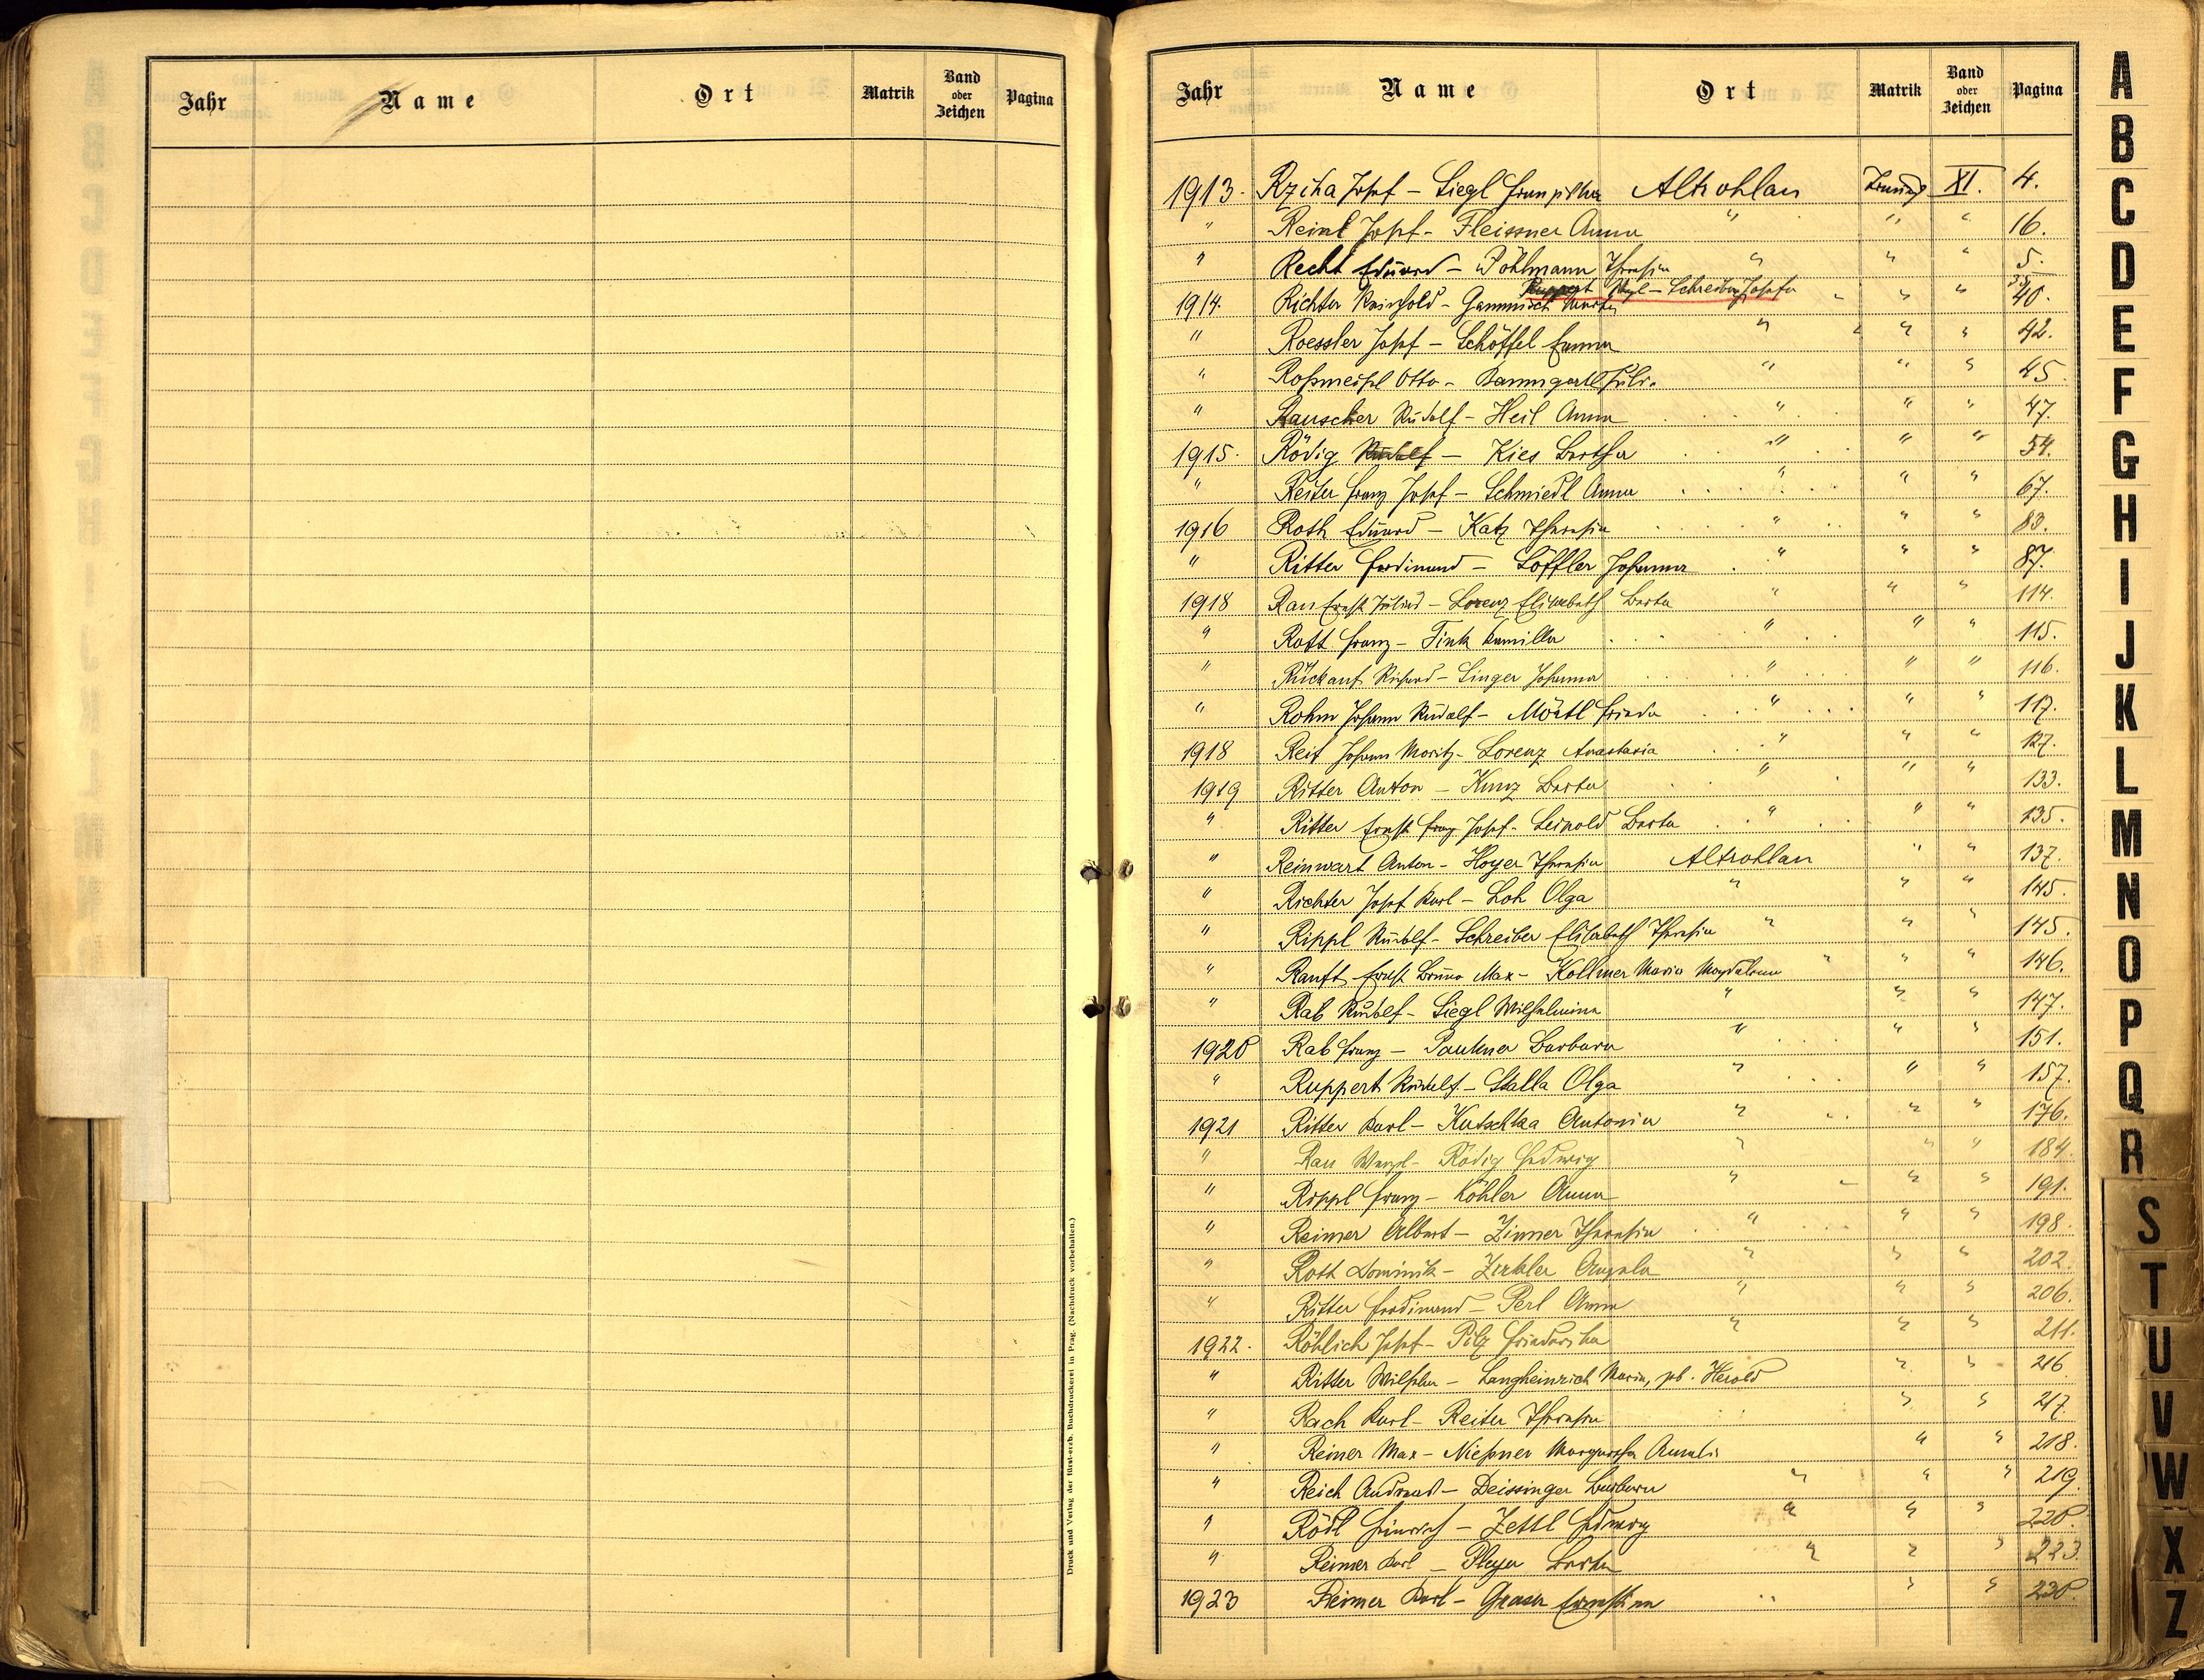 Jahr Name Ort Matrik Band oder Zeichen Pagina
Druck und Verlag der fürst-erzb. Buchdruckerei in Prag. (Nachdruck vorbehalten.)
Jahr Name Ort Matrik Band oder Zeichen Pagina
1913. Rziha Josef – Siegl Franziska Altrohlau Trauung XI. 4.
" Reinl Josef – Fleissner Anna " " " 16.
" Recht Eduard – Pöhlmann Theresia " " " 5.
Ruppert – Schreiber Josefa 35
1914. Richter Reinhold – Gammisch " " " 40.
" Roessler Josef – Schöffel Emma " " " 42.
" Roßmeisl Otto – Baumgartl Julie " " " 45.
" Rauscher Rudolf – Heil Anna " " " 47.
1915. Rödig Rudolf – Kies Bertha " " " 54.
" Reiter Franz Josef – Schmiedl Anna " " " 67.
1916 Roth Eduard – Katz Theresia " " " 83.
" Ritter Ferdinand – Löffler Johanna " " " 87.
1918 Rau Ernst Julius – Lorenz Elisabeth Berta " " " 114.
" Rott Franz – Fink Kamilla " " " 115.
" Rückauf Richard – Singer Johanna " " " 116.
" Rohm Johann Rudolf – Mörtl Frieda " " " 117.
1918 Reif Johann Moritz – Lorenz Anastasia " " " 127.
1919 Ritter Anton – Kunz Berta " " " 133.
" Ritter Ernst Franz Josef – Leipold Berta " " " 135.
" Reinwart Anton – Hoyer Theresia Altrohlau " " 137.
" Richter Josef Karl – Loh Olga " " " 145.
" Rippl Rudolf – Schreiber Elisabeth Theresia " " " 145.
" Ranft Ernst Bruno Max – Kollmer Maria Magdalena " " " 146.
" Rab Rudolf – Siegl Wilhelmine " " " 147.
1920 Rab Franz – Paukner Barbara " " " 151.
" Ruppert Rudolf – Stalla Olga " " " 157.
1921 Ritter Karl – Kutschka Antonia " " " 176.
" Rau Wenzel – Rödig Hedwig " " " 184.
" Rippl Franz – Köhler Anna " " " 191.
" Reimer Albert – Zinner Theresia " " " 198.
" Rott Dominik – Zirkler Angela " " " 202.
" Ritter Ferdinand – Perl Anna " " " 206.
1922. Röhlich Josef – Pilz Friederike " " " 211.
" Ritter Wilhelm – Langheinrich Maria, gb. Herold " " 216
" Rach Karl – Reiter Theresia " " 217.
" Reiner Max – Nießner Margaretha Amalie " " 218.
" Reich Andreas – Deissinger Barbara " " " 219.
" Rödl Heinrich – Zettl Hedwig " " " 220.
" Reimer Karl – Pleyer Berta " " " 223.
1923 Reimer Karl – Graser Ernestine " " 230.
A
B
C
D
E
F
G
H
I
J
K
L
M
N
O
P
Q
R
S
T
U
V
W
X
Z